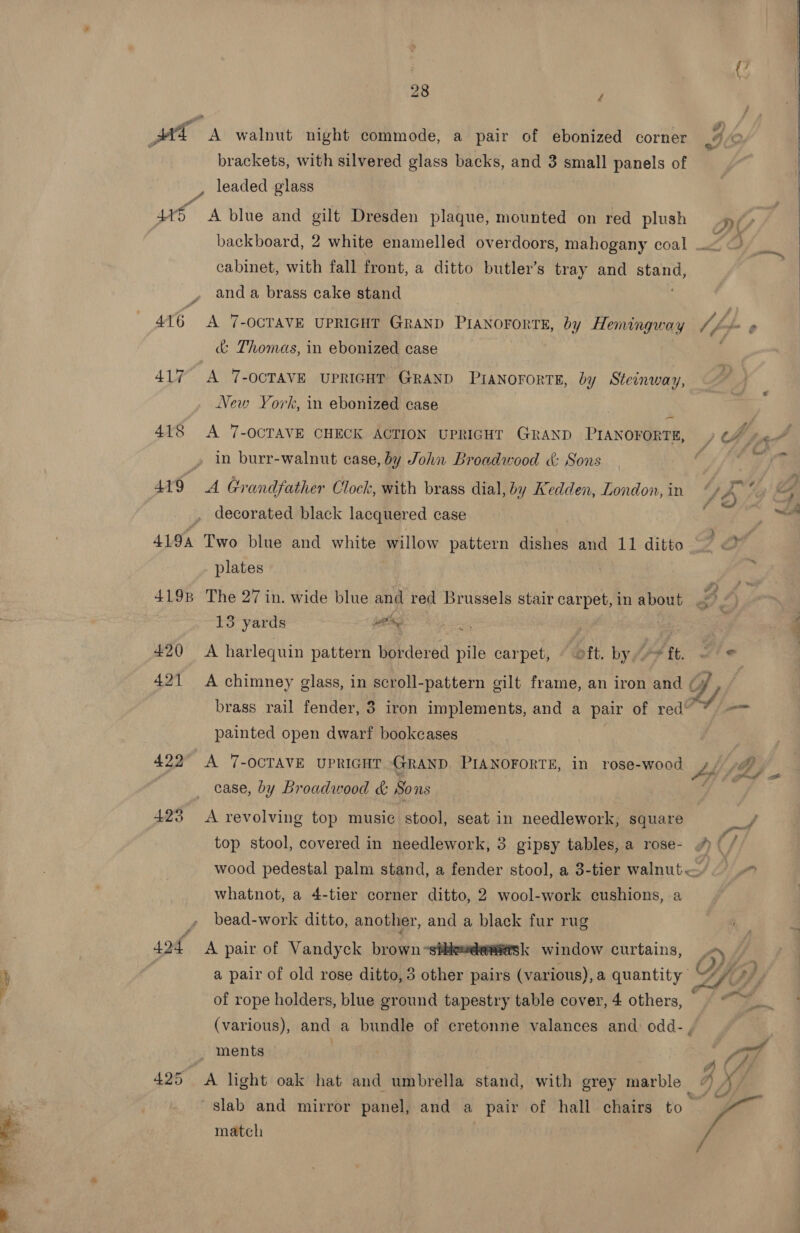 28
414 A walnut night commode, a pair of ebonized corner
brackets, with silvered glass backs, and 3 small panels of
leaded glass
415 A blue and gilt Dresden plaque, mounted on red plush
backboard, 2 white enamelled overdoors, mahogany coal
cabinet, with fall front, a ditto butler's tray and stand,
and a brass cake stand
416 A 7-OCTAVE UPRIGHT GRAND PIANOFORTE, by Hemingway
& Thomas, in ebonized case
417 A 7-OCTAVE UPRIGHT GRAND PIANOFORTE, by Steinway,
New York, in ebonized case
418 A 7-OCTAVE CHECK ACTION UPRIGHT GRAND PIANOFORTE,
in burr-walnut case, by John Broadwood & Sons
419 A Grandfather Clock, with brass dial, by Kedden, London, in
decorated black lacquered case
419A Two blue and white willow pattern dishes and 11 ditto
plates
419B The 27 in. wide blue and red Brussels stair carpet, in about
13 yards
420 A harlequin pattern bordered pile carpet, ft. by ft.
421 A chimney glass, in scroll-pattern gilt frame, an iron and
brass rail fender, 3 iron implements, and a pair of red
painted open dwarf bookcases
422 A 7-OCTAVE UPRIGHT GRAND PIANOFORTE, in rose-wood
case, by Broadwood & Sons
423 A revolving top music stool, seat in needlework, square
top stool, covered in needlework, 3 gipsy tables, a rose-
wood pedestal palm stand, a fender stool, a 3-tier walnut
whatnot, a 4-tier corner ditto, 2 wool-work cushions, a
bead-work ditto, another, and a black fur rug
424 A pair of Vandyck brown window curtains,
a pair of old rose ditto, 3 other pairs (various), a quantity
of rope holders, blue ground tapestry table cover, 4 others,
(various), and a bundle of cretonne valances and odd-
ments
425 A light oak hat and umbrella stand, with grey marble
slab and mirror panel, and a pair of hall chairs to
match